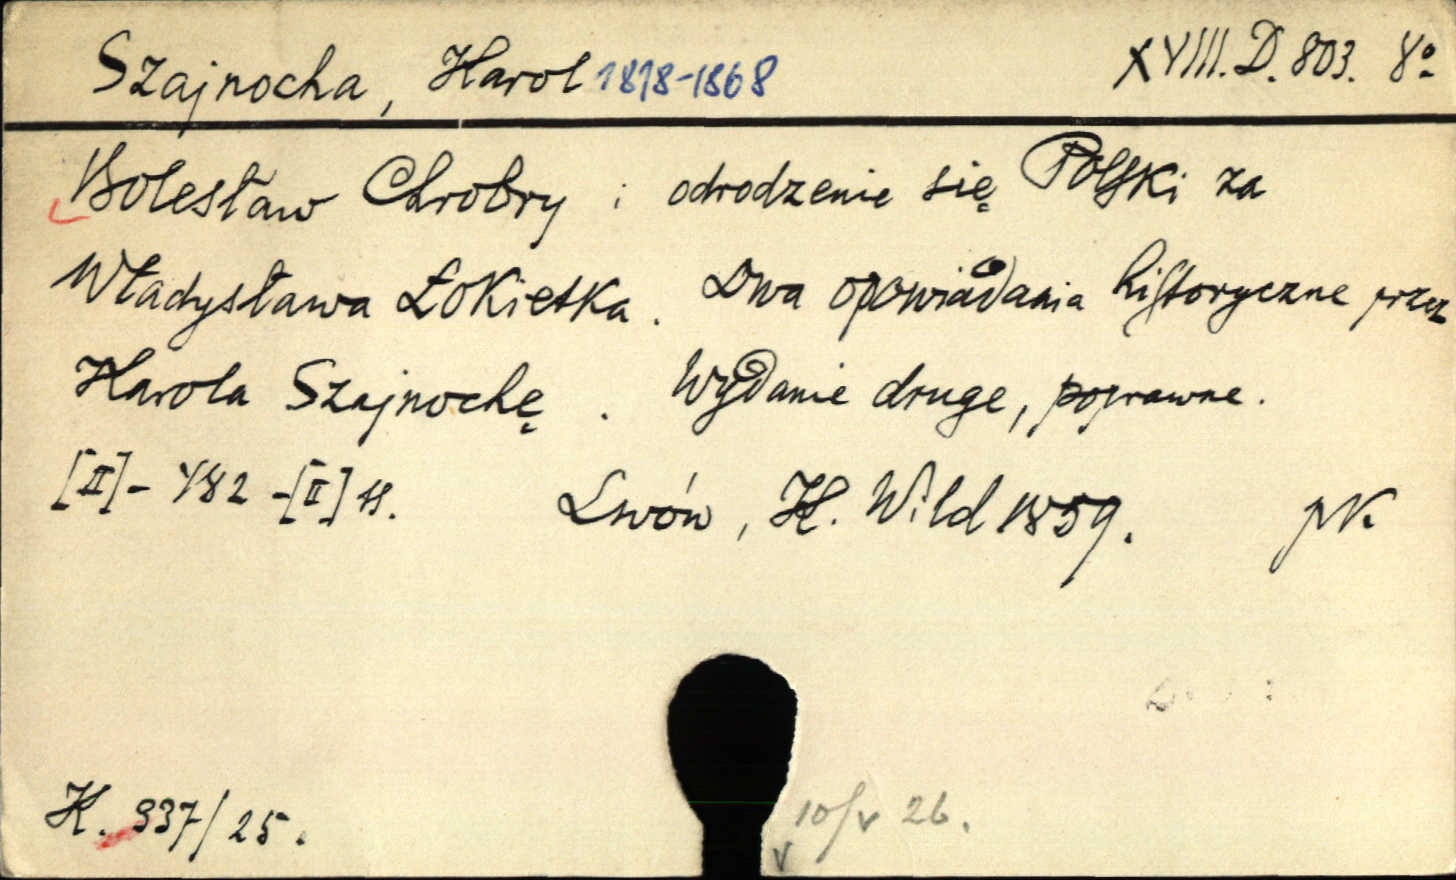 Szajnocha, Karol 1818-1868 XVIII. D. 803. 8º
Bolesław Chrobry i odrodzenie się Polski za
Władysława Łokietka. Dwa opowiadania historyczne przez
Karola Szajnochę. Wydanie druge, poprawne.
[II]-482-[II] s. Lwów, K. Wild 1859. pN.
K. 937/25.
10/V 26.